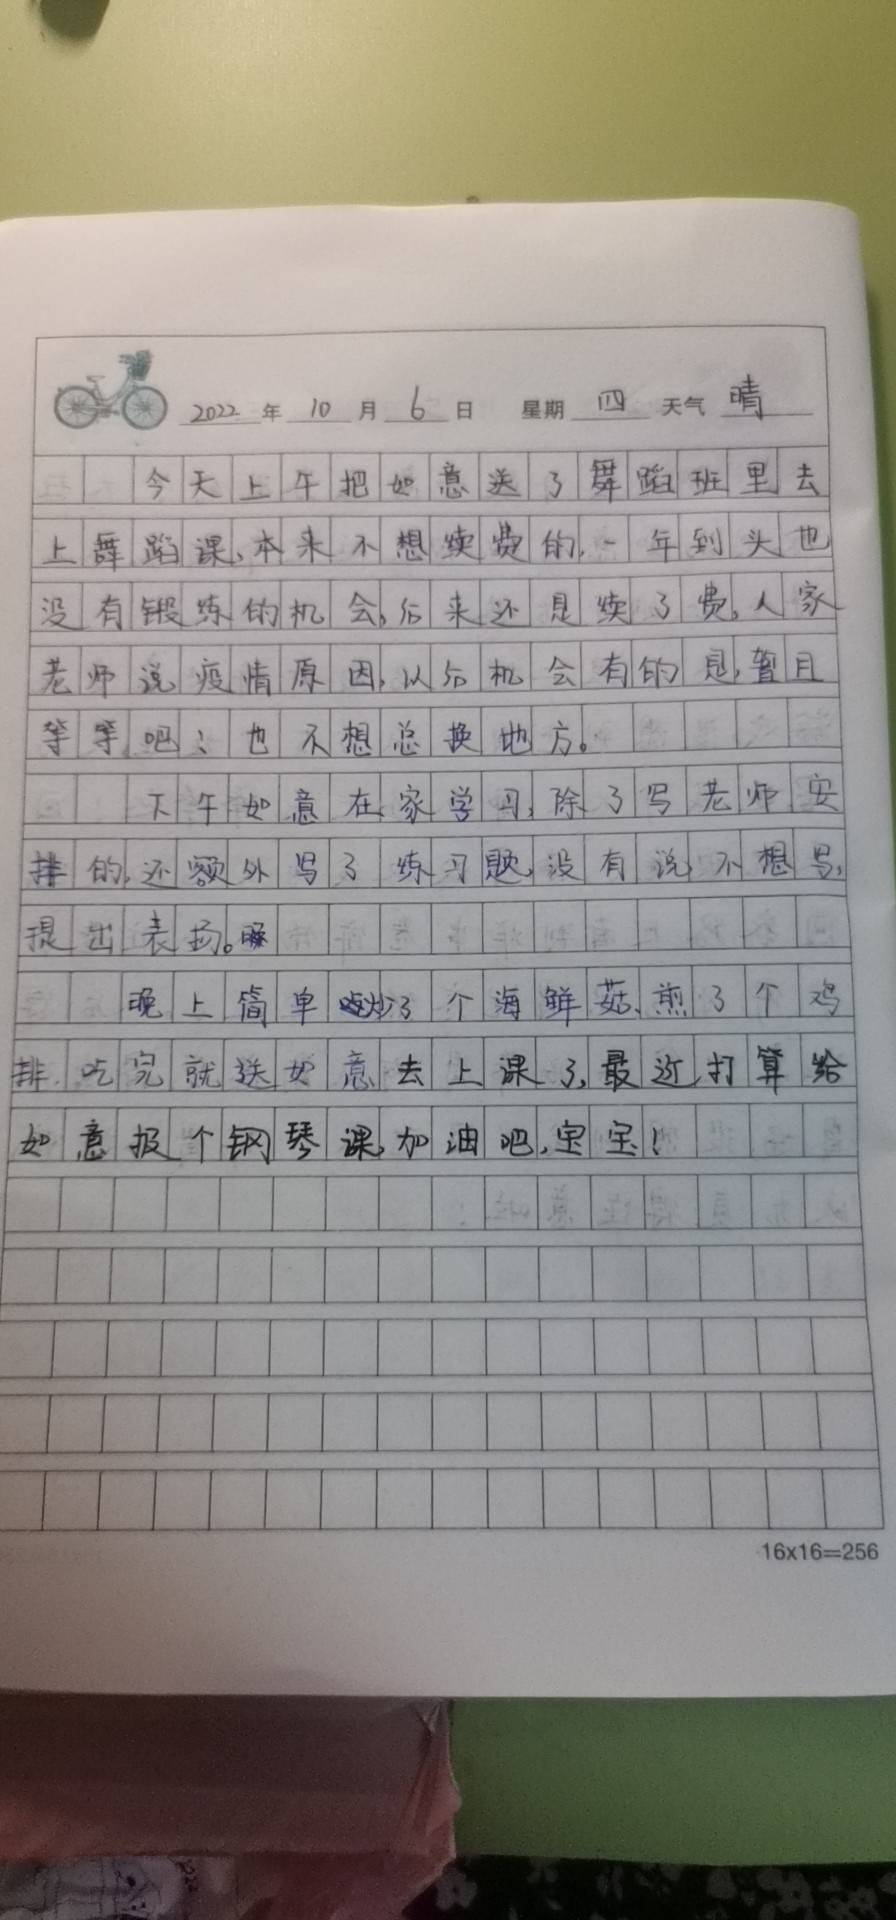 2022年10月6日 星期四 天气晴
今天上午把如意送了舞蹈班里去
上舞蹈课,本来不想续费的,一年到头也
没有锻练的机会,后来还是续了费,人家
老师说疫情原因,以后机会有的是,暂且
等等吧!也不想总换地方。
下午如意在家学习,除了写老师安
排的,还额外写了练习题,没有说不想写,
提出表扬。
晚上简单炒了个海鲜菇,煎了个鸡
排,吃完就送如意去上课了,最近打算给
如意报个钢琴课,加油吧,宝宝!
16x16=256